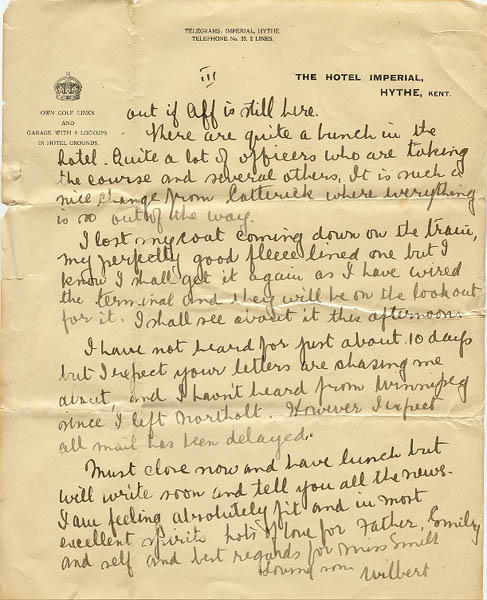 TELEGRAMS: IMPERIAL, HYTHE.
TELEPHONE No. 35, 2 LINES.
III
THE HOTEL IMPERIAL,
HYTHE, KENT.
OWN GOLF LINKS
AND
GARAGE WITH 8 LOCKUPS
IN HOTEL GROUNDS.
out if Aff is still here.
There are quite a bunch in the
hotel. Quite a lot of officers who are taking
the course and several others. It is such a
nice change from Catterick where everything
is so out of the way.
I lost my coat coming down on the train,
my perfectly good fleece lined one but I
know I shall get it again as I have wired
the terminal and they will be on the lookout
for it. I shall see about it this afternoon.
I have not heard for just about 10 days
but I expect your letters are chasing me
about, and I havn't heard from Winnipeg
since I left Northolt. However I expect
all mail has been delayed.
Must close now and have lunch but
will write soon and tell you all the news.
I am feeling absolutely fit and in most
excellent spirits. Lots of love for Father, Emily
and self and best regards for Miss
Loving son
Wilbert